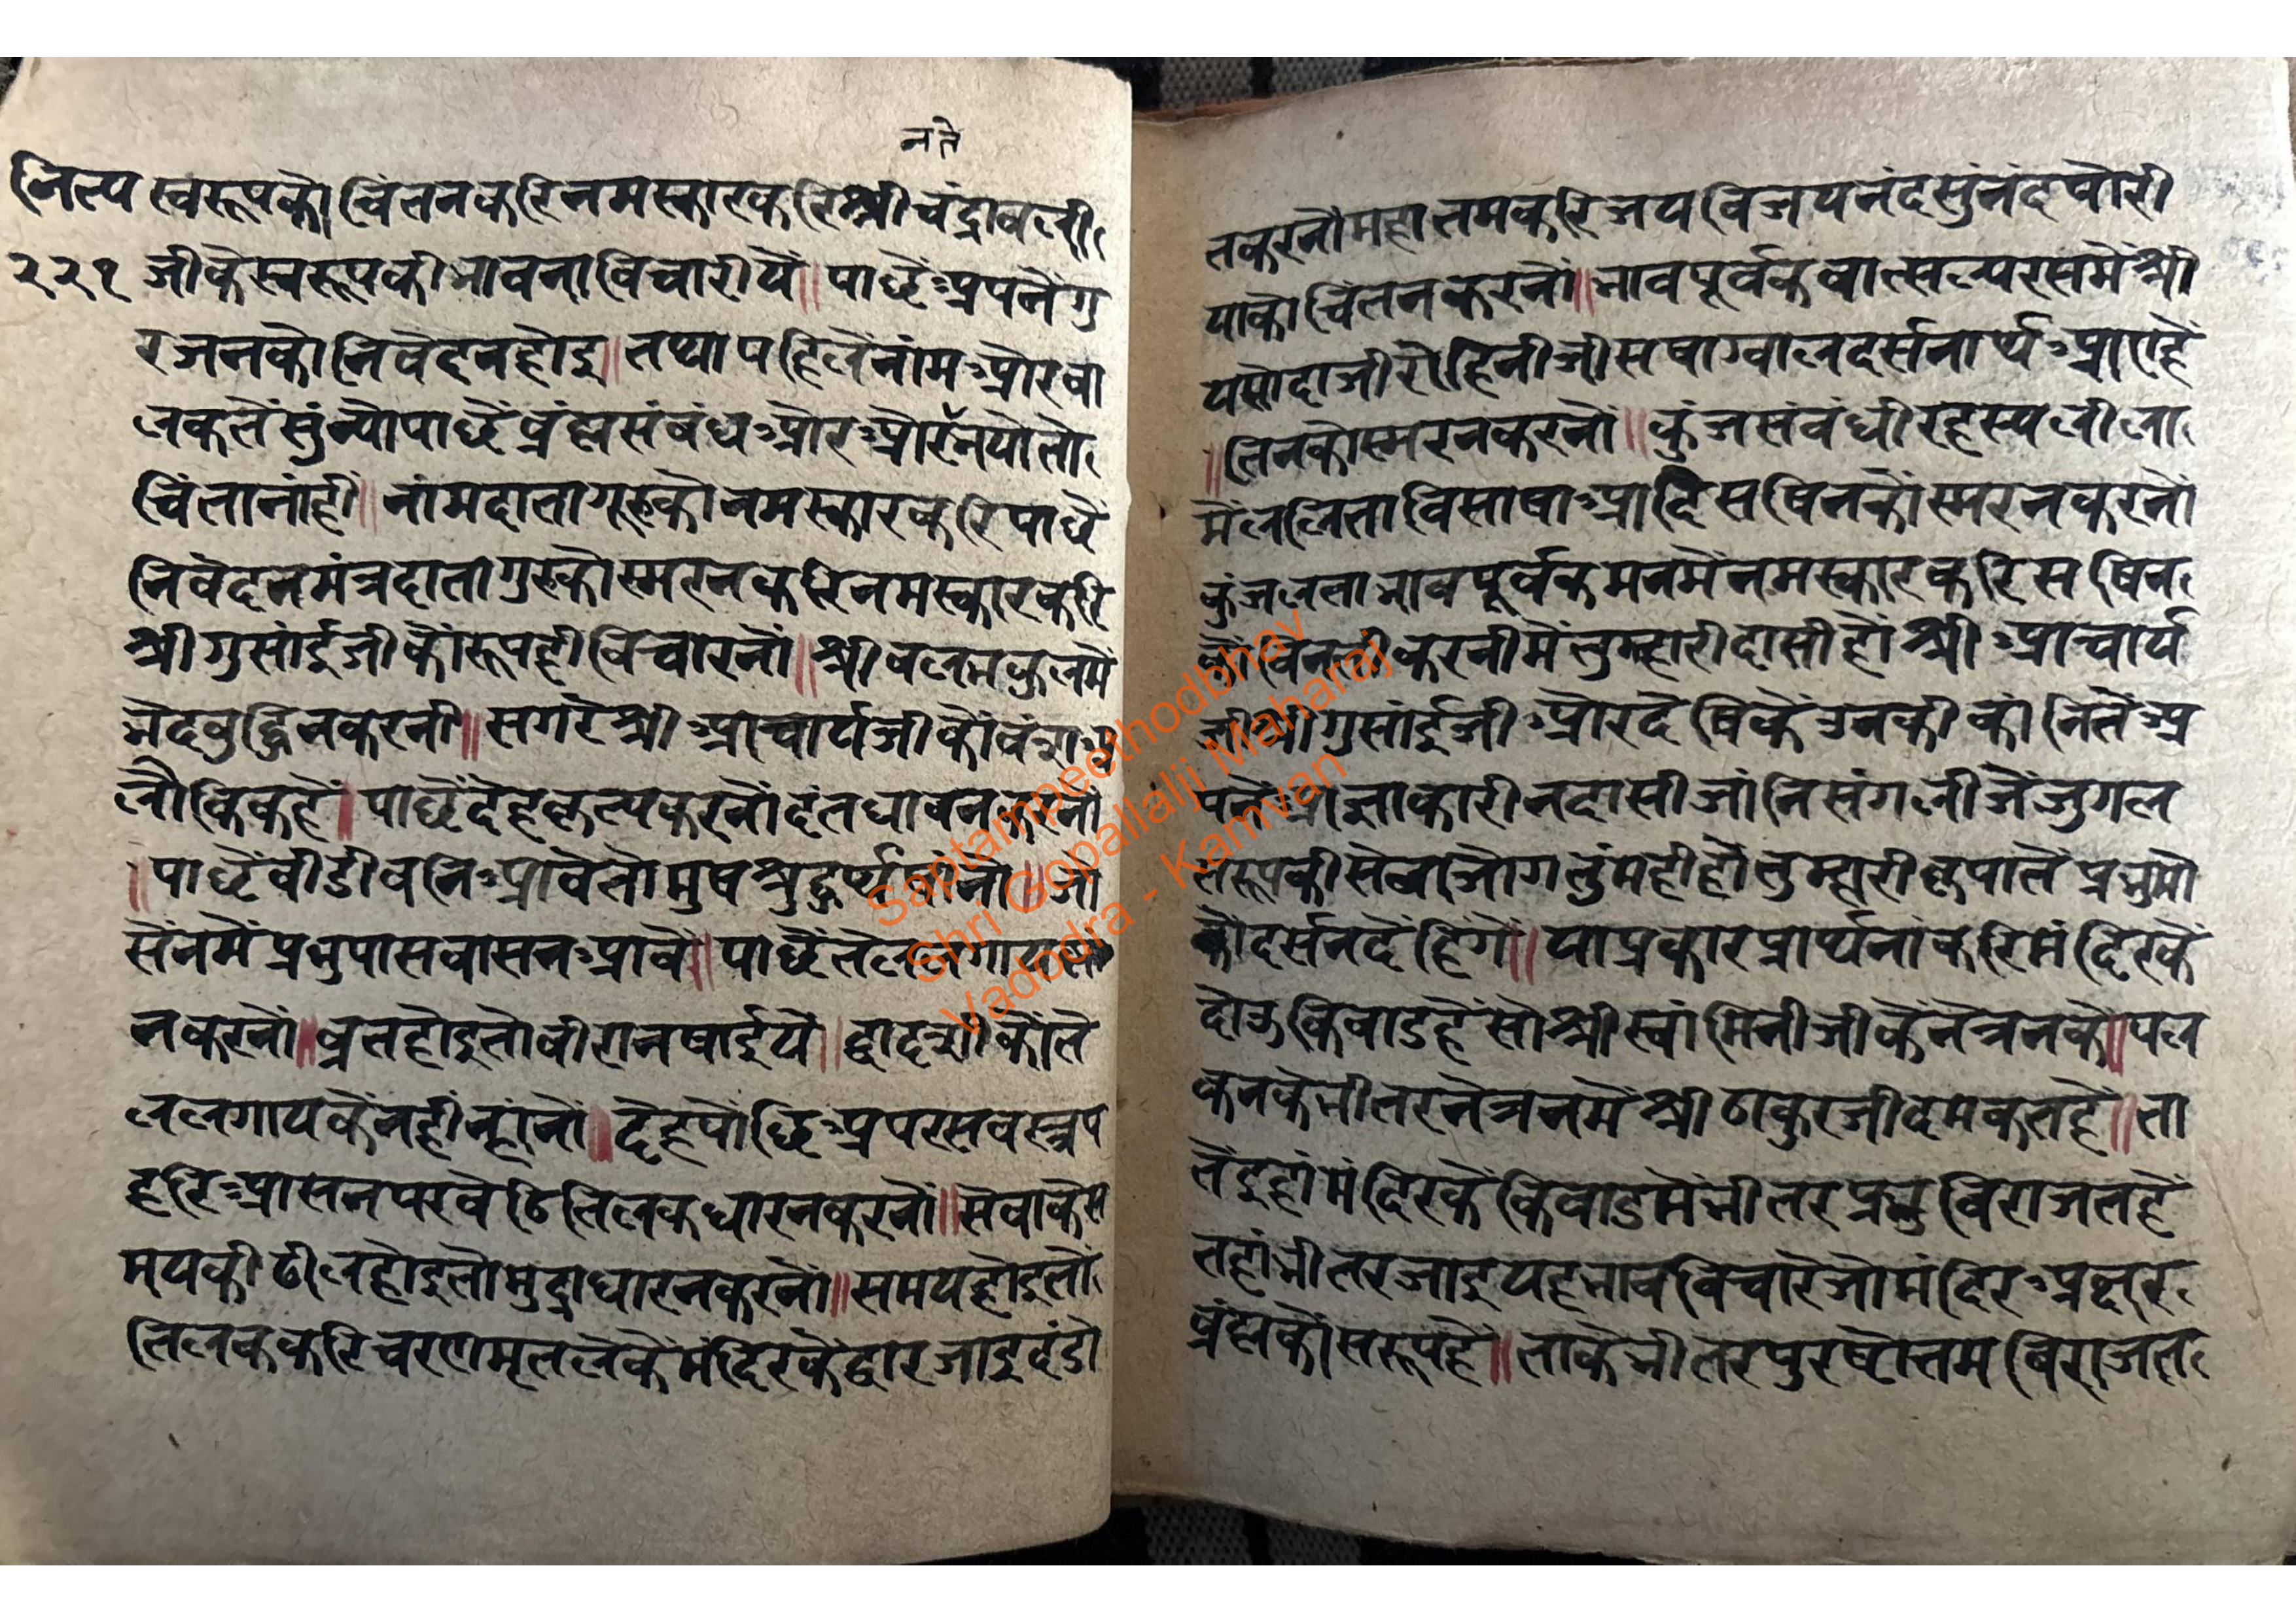 नते
नित्य स्वरूपकौ चिंतनकरि नमस्कारकरि श्री चंद्रावली
२२१ जीकेस्वरूपकी भावना विचारीयें॥ पाछें अपनेंगु
रजनकौ निवेदनहोइ॥ तथा पहिलेंनांम और वा
लकतें सुंन्यो पाछें ब्रंह्मसंबंध और और्नपौ तो
चिंता नांही॥ नांमदाता गुरुकौ नमस्कारकरि पाछें
निवेदनमंत्रदाता गुरुकौ स्मरनकरि नमस्कारकरि
श्रीगुसांईजीकौं रूपही विचारनों॥ श्रीवलभकुलमें
भेदबुद्धि नकरनी॥ सगरे श्री आचार्यजीकौ वंश अ
लौकिकहै॥ पाछें देहकृत्यकरनों दंतधावनकरनों
॥ पाछें वीडी वनिआवेतो मुषश्रुद्धर्थ लेंनों॥ जो
सेंनमें प्रभुपास वासनआवें॥ पाछें तेललगाय स्ना
नकरनों॥ व्रतहोइतो वीरा नषाईयें॥ द्वादशीकौ ते
ललगायकें नही न्हांनों॥ देहपोंछि अपरसवस्त्र प
हरि आसनपर वेठि तिलकधारनकरनों॥ सेवाकेस
मयकी ढील होइतो मुद्राधारनकरनों॥ समय होइतो
तिलककरि चरणामृतलेकें मंदिरकेंद्वार जाइ दंडो
तकरनी महातमकरि जय विजय नंद सुंनंद षोरी
याकौ चिंतनकरनों॥ भावपूर्वक वात्सल्यरसमें श्री
यसोदाजी रोहिनीजी सषा ग्वाल दर्सनार्थ आएहें
॥ तिनकौ स्मरनकरनों॥ कुंजसंवंधी रहस्यलीला
में ललिता विसाषा आदि सषिनकों स्मरनकरनों
कुंजलता भावपूर्वक मनमें नमस्कारकरि सषिन
कों विनती करनी में तुम्हारी दासीहों श्री आचार्य
जी श्रीगुसांईजी और देषिकें उनकी कांनितें अ
पनें आज्ञाकारीनदासीजांनि संगलीजें जुगल
स्वरूपकी सेवा जोग तुंमहीहौ तुम्हारी कृपातें प्रभुमो
कौ दर्सनदेंहिंगे॥ याप्रकार प्रार्थनांकरि मंदिरकें
दोऊ किवाड हें सो श्रीस्वांमिनीजीकें नेत्रनके॥ पल
कनकेभीतर नेत्रनमें श्रीठाकुरजी दमकतहें॥ ता
तें इहां मंदिरकें किवाडमें भीतर प्रभु विराजतहें
तहां भीतर जाइ यहभाव विचारे जो मंदिर अक्षर
ब्रंह्मकौ सरूपहें॥ ताकेभीतर पुरषोत्तम बिराजत
Saptampeethodbhav
Shri Gopallalji Maharaj
Vadodra - Kamvan